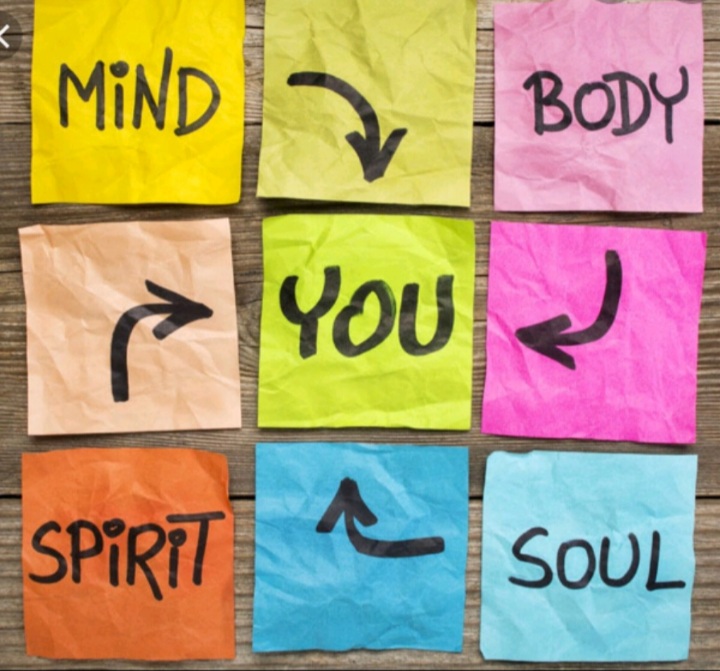 MiND
BODY
YOU
SPiRiT
SOUL